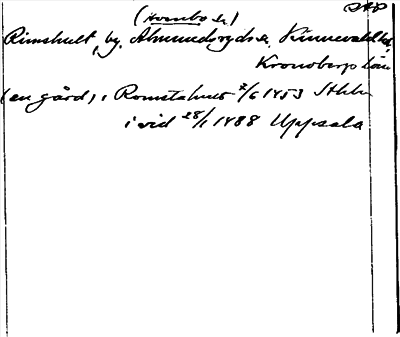 (Hornbo sn)
Rimshult, by, Almundsryds sn, Kinnevalds hd,
Kronobergs län
(en gård), i Romstahus 2/6 1453 Sthlm
i vid 28/1 1488 Uppsala